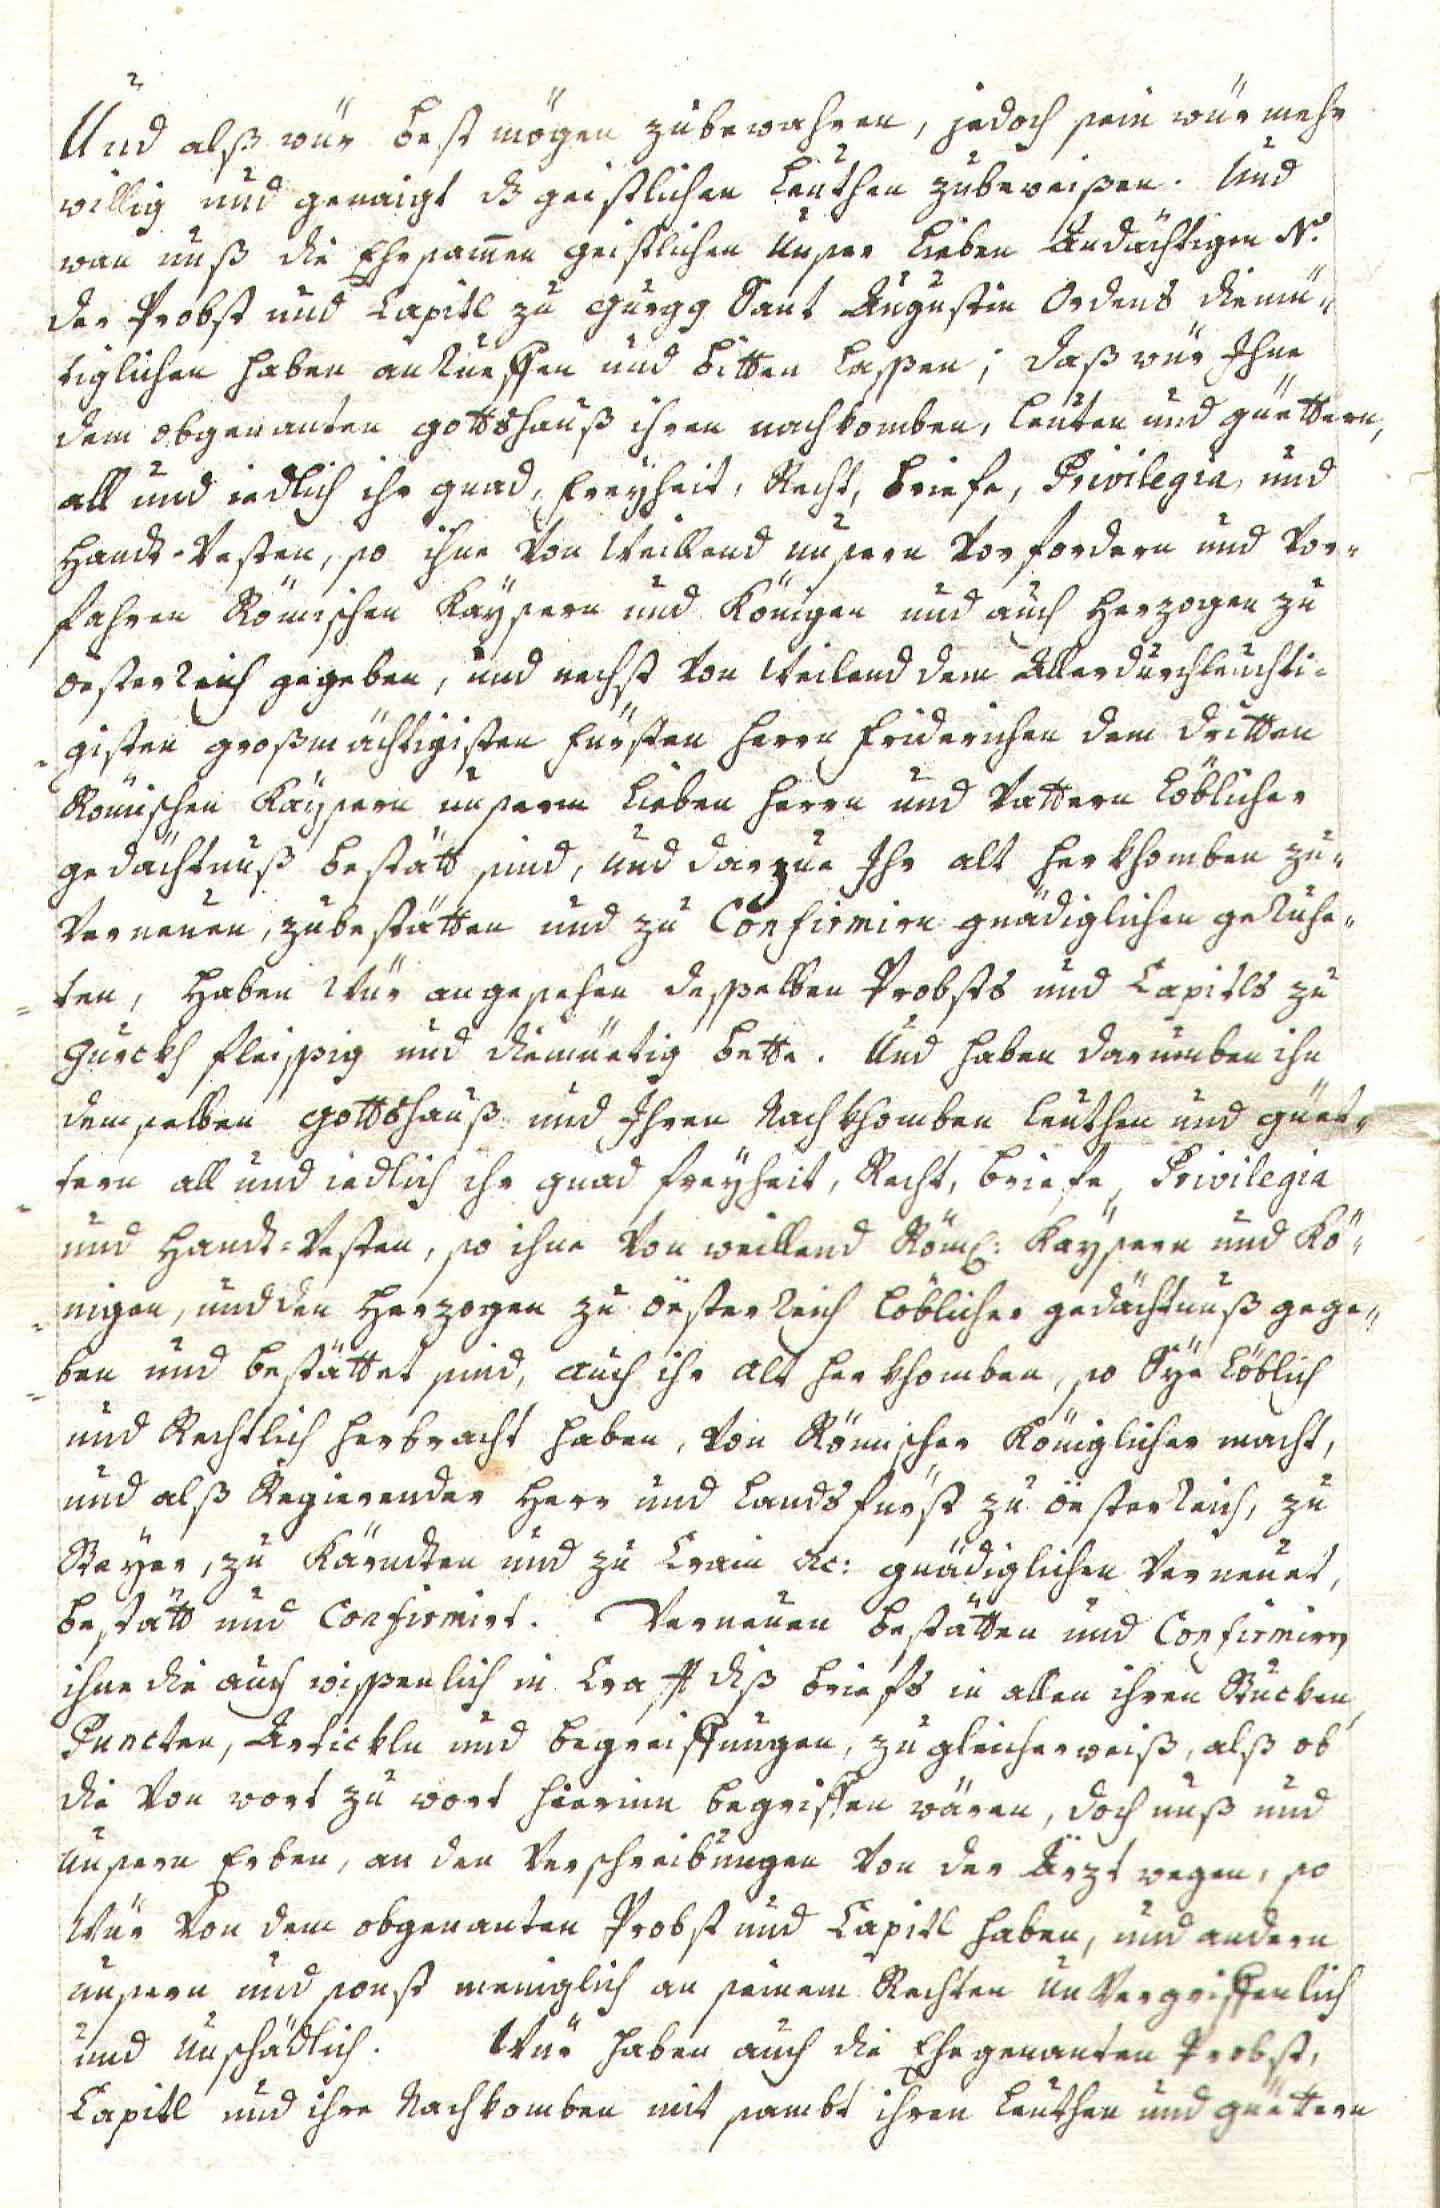 Und alß wür best mögen zubewahren, jedoch sein wür mehr
willig und genaigt ds geistlichen Leuthen zubeweißen. Und
wan unß die Ehrsamen geistlichen Unser Lieben Andächtigen N.
der Probst und Capitl zu Gurgg Sant Augustin Ordens diemü-
tiglichen haben anrueffen und bitten Lassen; daß wür Ihne
dem obgenanten gottshauß ihren nachkomben, Leuten und güettern,
all und iedlich ihr gnad, Freyheit, Recht, Briefe, Privilegia, und
Handt-Vesten, so ihne Von Weillend unsern Vorfordern und Vor-
fahren Römischen Kaysern und Königen und auch Herzogen zu
Oesterreich gegeben, und nechst Von Weilend dem Allerdurchleuchti-
gisten großmächtigisten Fürsten Herrn Friderichen dem dritten
Römischen Kaysern unserm Lieben Herrn und Vattern Löblicher
gedächtnuß bestätt sind, und darzue Ihr alt herkhomben zu-
Verneuen, zubestätten und zu Confirmirn gnädiglichen geruhe-
ten, Haben Wür angesehen desselben Probsts und Capitls zu
Gurckh fleissig und diemüetig bette. Und haben darumben ihn
demselben Gottshauß und Ihren Nachkhomben Leuthen und güet-
tern all und iedlich ihr gnad Freyheit, Recht, Briefe, Privilegia
und Handt-Vesten, so ihne Von weillend Röm: Kaysern und Kö-
nigen, und den Herzogen zu Oesterreich Löblicher gedächtnuß gege-
ben und bestättet sind, auch ihr alt herkhomben, so Sye Löblich
und Rechtlich herbracht haben, Von Römischer Königlicher macht,
und alß Regierender Herr und Landsfürst zu Oesterreich, zu
Steyer, zu Kärndten und zu Crain etc: gnädiglichen Verneuet,
bestätt und Confirmirt. Verneuen bestätten und Confirmirn
ihne die auch wissenlich in Crafft diß briefs in allen ihren Stucken,
Puncten, Artickln und begreiffungen, zugleicherweiß, alß ob
die Von wort zu wort hierinn begriffen wären, doch unß und
Unsern Erben, an den Verschreibungen Von der Ärzt wegen, so
Wür Von dem obgenanten Probst und Capitl haben, und andern
unsern und sonst meniglich an seinem Rechten unVergriffenlich
und unschädlich. Wür haben auch die Ehegenanten Probst,
Capitl und ihre Nachkomben mit sambt ihren Leuthen und güettern